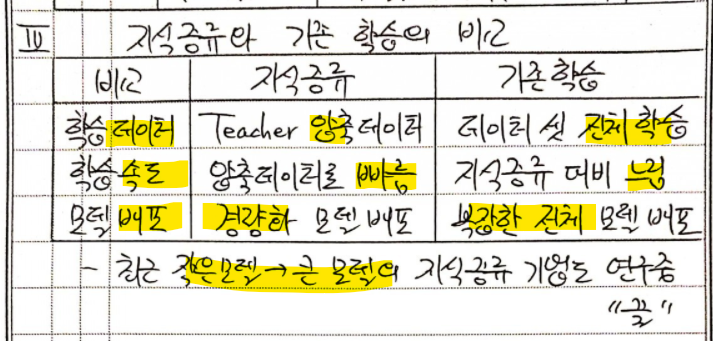 IV 지식증류와 기존 학습의 비교
비교 지식증류 기존학습
학습 데이터 Teacher 압축데이터 데이터 셋 전체 학습
학습 속도 압축데이터로 빠름 지식증류 대비 느림
모델 배포 경량화 모델 배포 복잡한 전체 모델 배포
- 최근 작은모델→큰 모델의 지식증류 기법도 연구중
"끝"